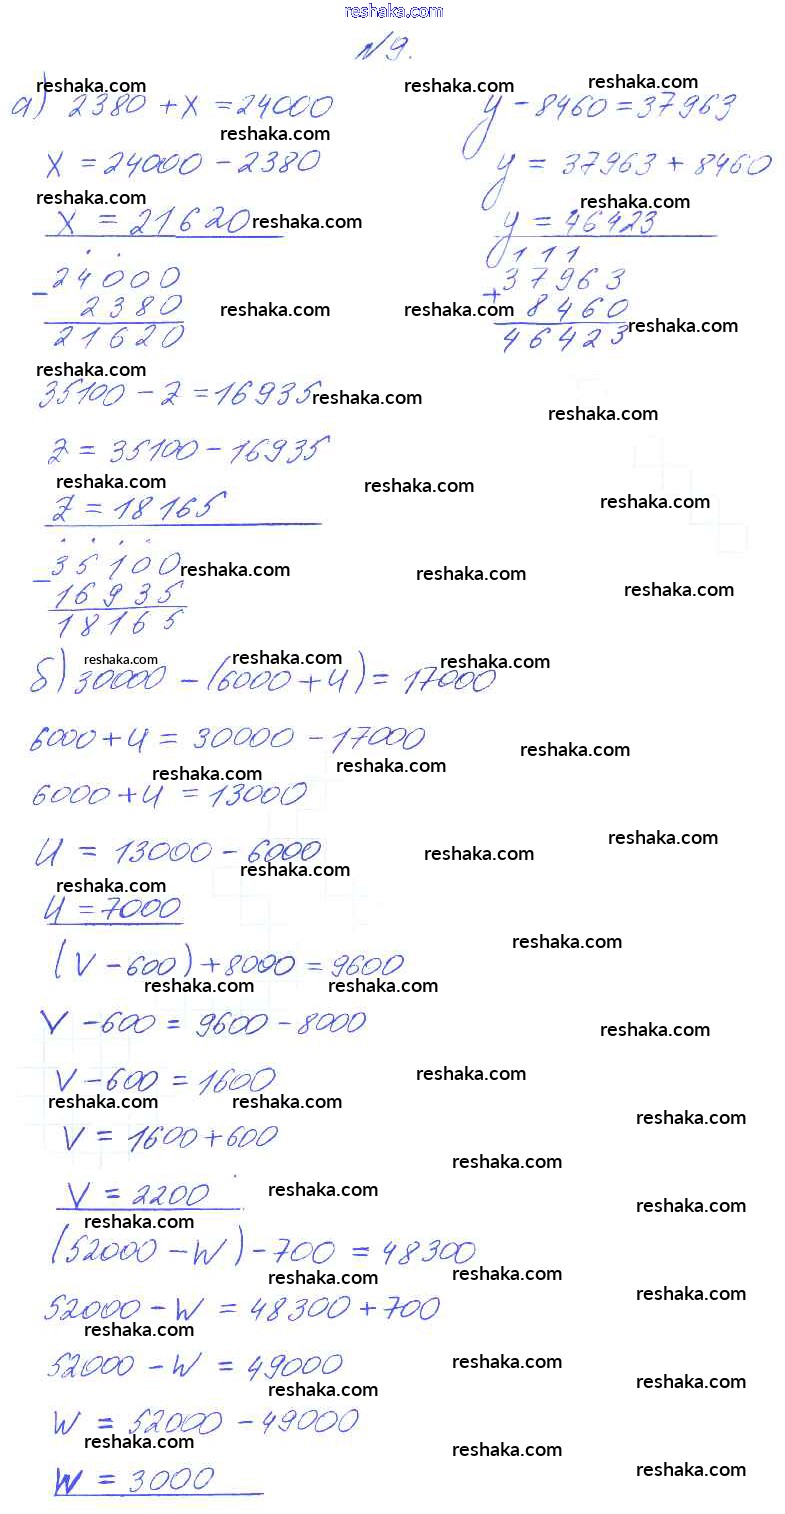 reshaka.com
№9.
а) 2380 + x = 24000
x = 24000 - 2380
x = 21620
- 24000
2380
21620
y - 8460 = 37963
y = 37963 + 8460
y = 46423
111
+ 37963
8460
46423
35100 - z = 16935
z = 35100 - 16935
z = 18165
- 35100
16935
18165
б) 30000 - (6000 + u) = 17000
6000 + u = 30000 - 17000
6000 + u = 13000
u = 13000 - 6000
u = 7000
(v - 600) + 8000 = 9600
v - 600 = 9600 - 8000
v - 600 = 1600
v = 1600 + 600
v = 2200
(52000 - w) - 700 = 48300
52000 - w = 48300 + 700
52000 - w = 49000
w = 52000 - 49000
w = 3000